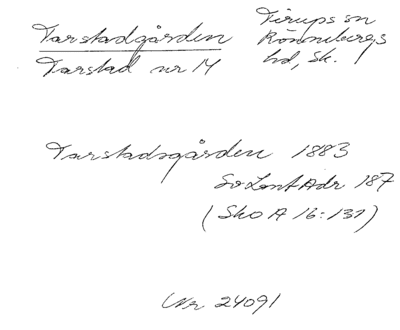 Tarstadgården
Tarstad nr 14
Tirups sn
Rönnebergs
hd, Sk.
Tarstadsgården 1883
SvLantAdr 187
(SkO A 16:137)
Nr 24091